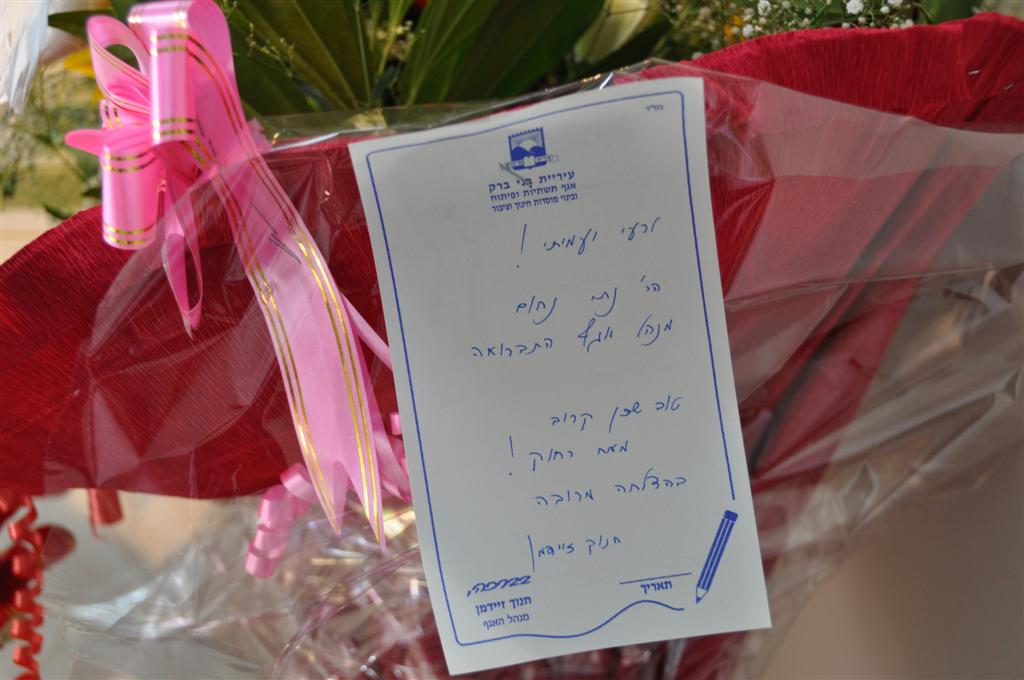 בס״ד
עיריית בני ברק
אגף תשתיות ופיתוח
ובינוי מוסדות חינוך וציבור
לרעי ועמיתי !
הר' נתן נחום
מנהל אגף התברואה
טוב שכן קרוב
מאח רחוק !
בהצלחה מרובה
חנוך זיידמן
בברכה,
חנוך זיידמן
מנהל האגף
תאריך